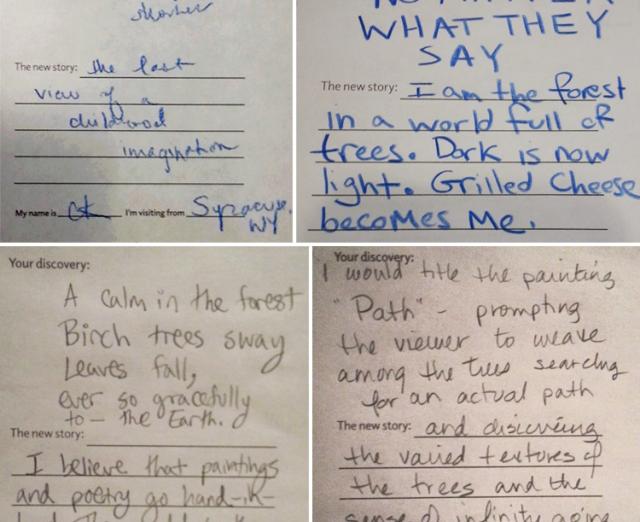 shorter
The new story: the last
view of a
childhood
imagination
My name is I'm visiting from Syracuse,
NY
WHAT THEY
SAY
The new story: I am the forest
in a world full of
trees. Dark is now
light. Grilled Cheese
becomes me.
Your discovery:
A calm in the forest
Birch trees sway
Leaves fall,
ever so gracefully
to - the Earth.
The new story:
I believe that paintings
and poetry go hand-in-
Your discovery:
I would title the painting
"Path" - prompting
the viewer to weave
among the trees searching
for an actual path
The new story: and discovering
the varied textures of
the trees and the
sense of infinity going